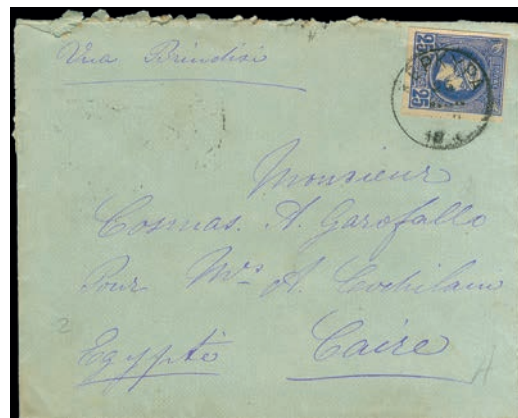 Via Brindisi
25 25
Monsieur
Cosmas. A. Garofallo
Pour Mrs A.
Egypte Caire
2